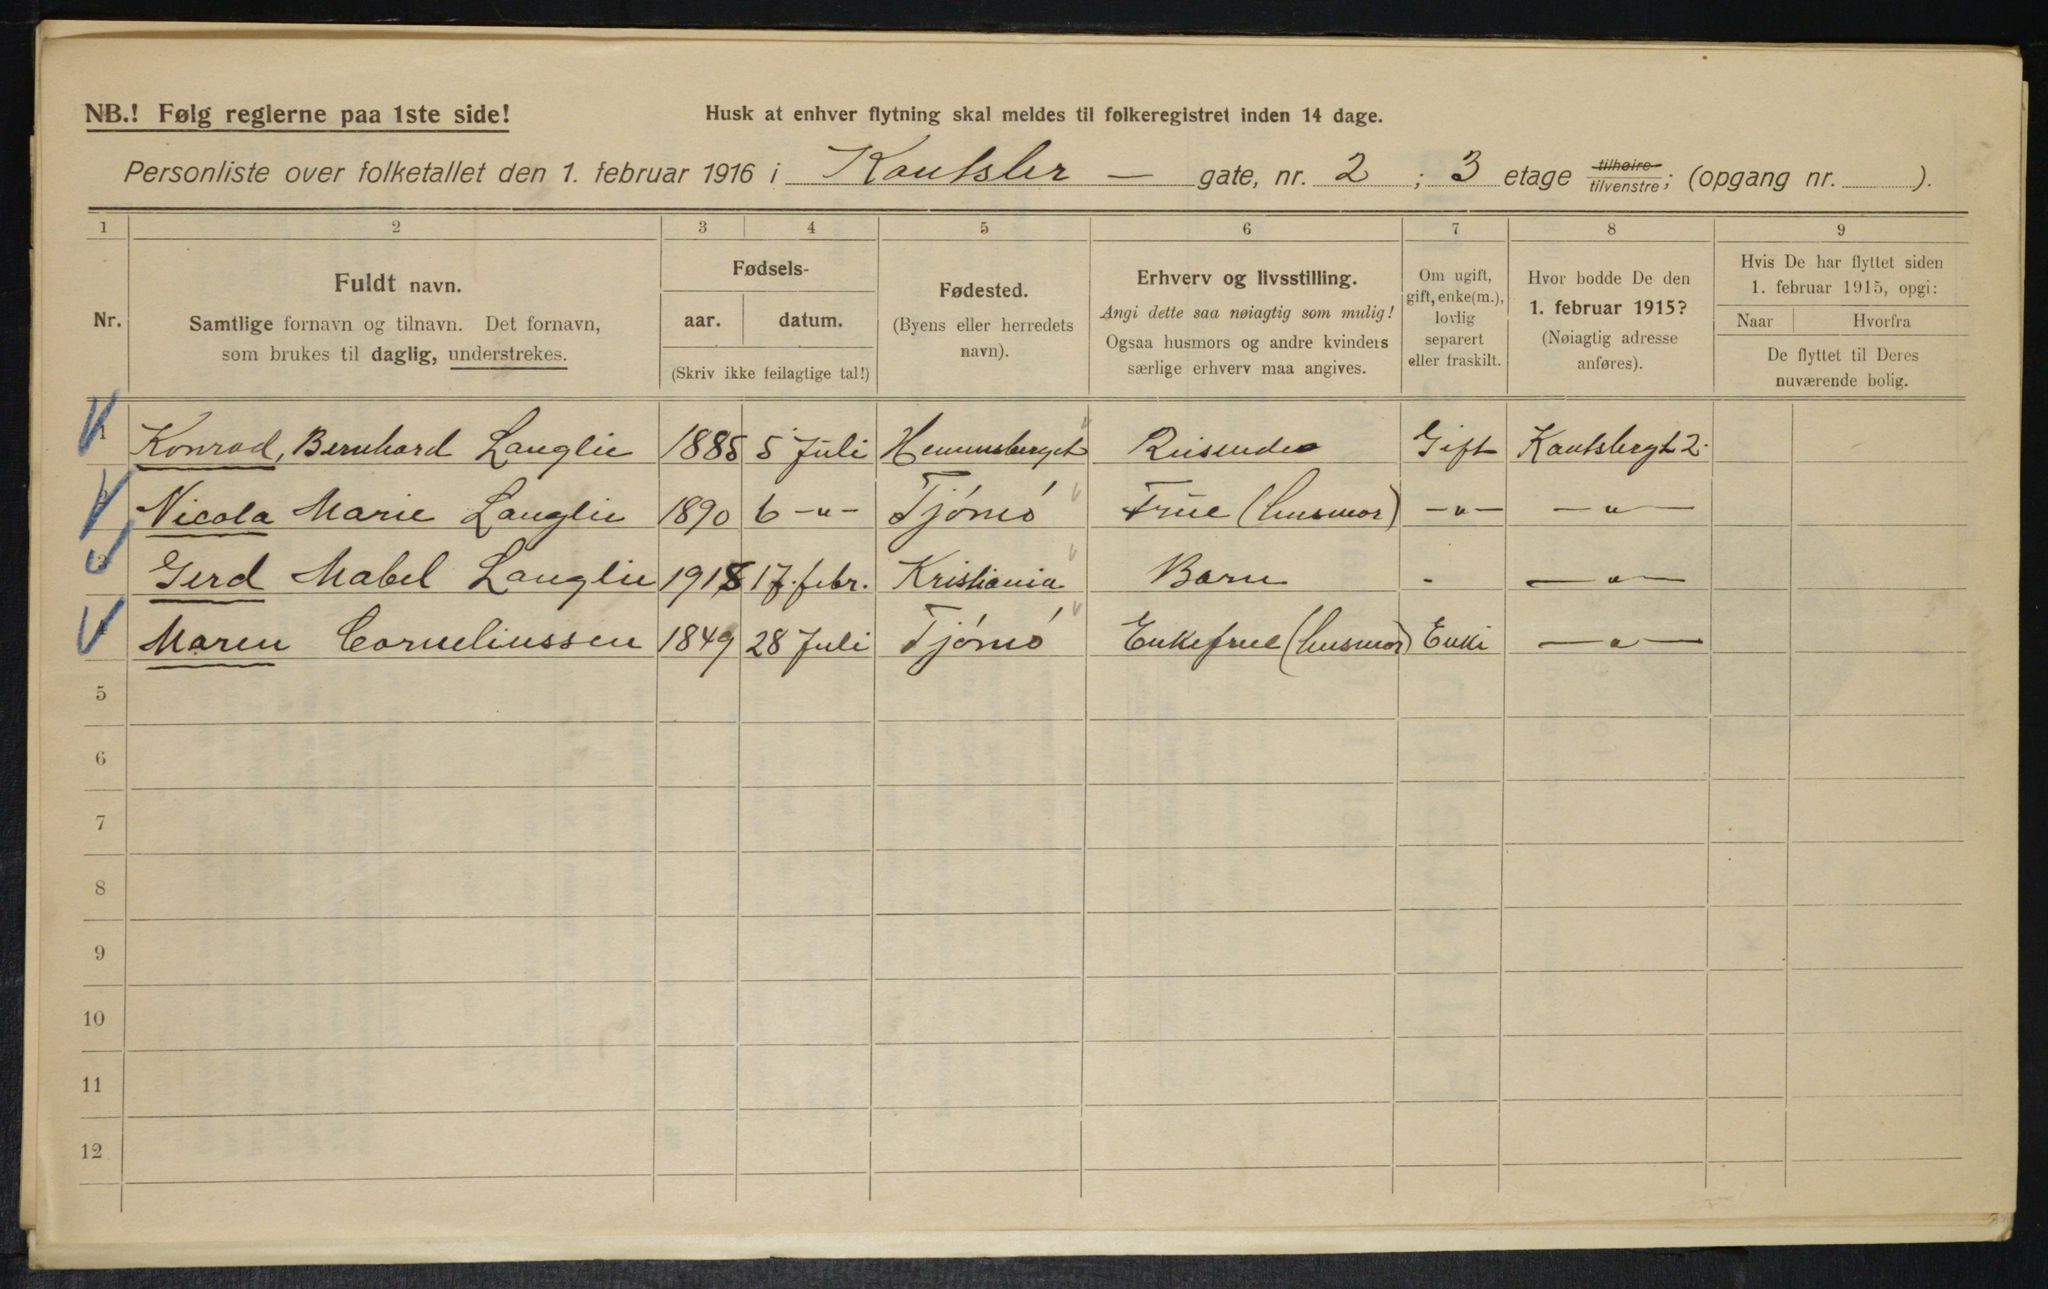 NB.! Følg reglerne paa 1ste side!
Husk at enhver flytning skal meldes til folkeregistret inden 14 dage.
Personliste over folketallet den 1. februar 1916 i Kantsler — gate, nr. 2 ; 3 etage tilhøire/tilvenstre; (opgang nr. ).
1 2 3 4 5 6 7 8 9
Nr.
Fuldt navn.
Samtlige fornavn og tilnavn. Det fornavn,
som brukes til daglig, understrekes.
Fødsels-
aar. datum.
(Skriv ikke feilagtige tal!)
Fødested.
(Byens eller herredets
navn).
Erhverv og livsstilling.
Angi dette saa nøiagtig som mulig!
Ogsaa husmors og andre kvinders
særlige erhverv maa angives.
Om ugift,
gift, enke(m.),
lovlig
separert
eller fraskilt.
Hvor bodde De den
1. februar 1915?
(Nøiagtig adresse
anføres).
Hvis De har flyttet siden
1. februar 1915, opgi:
Naar Hvorfra
De flyttet til Deres
nuværende bolig.
1 Konrad, Bernhard Langlie 1885 5 Juli Reisende Gift Kantslergt 2.
2 Nicola Marie Langlie 1890 6 -"- Tjømø Frue (husmor) -"- -"-
3 Gerd Mabel Langlie 17. febr. Kristiania Barn - -"-
4 Maren Corneliussen 1849 28 Juli Tjømø Enkefrue (husmor) Enke -"-
5
6
7
8
9
10
11
12